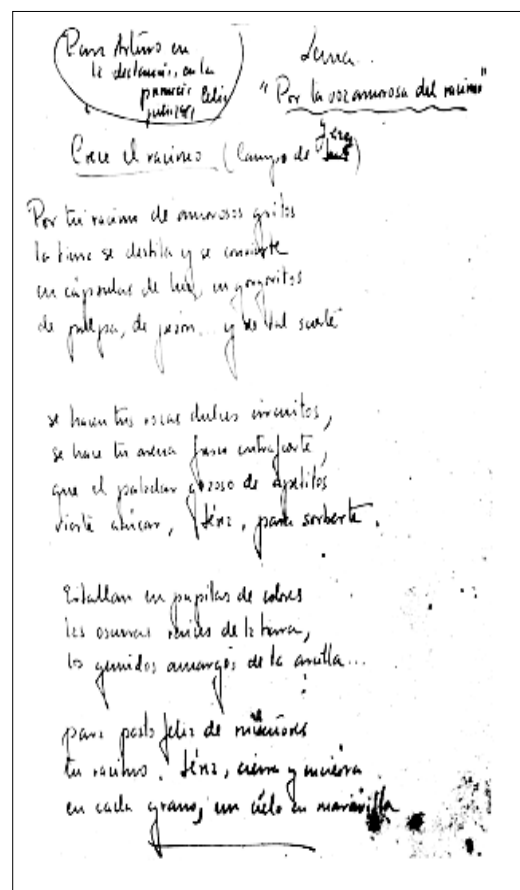 Para Arturo en
la declamación, en la
primacía Celia
julio 1981
Lema..
"Por la voz amorosa del racimo"
Crece el racimo (Campo de Jerez)
Por tu racimo de amorosos gritos
la tierra se destila y se convierte
en cápsulas de luz, en gorgoritos
de pulpa, de jazmín.. y de tal suerte
se hacen tus rocas dulces circuitos,
se hace tu arena fresco
que el paladar gozoso de apetitos
vierte azúcar, Jérez, para sorberte.
Estallan en pupilas de colores
las oscuras raíces de la tierra,
los gemidos amargos de la arcilla...
para pasto feliz de
tu racimo. Jérez, cierra y encierra
en cada grano, un cielo en maravilla